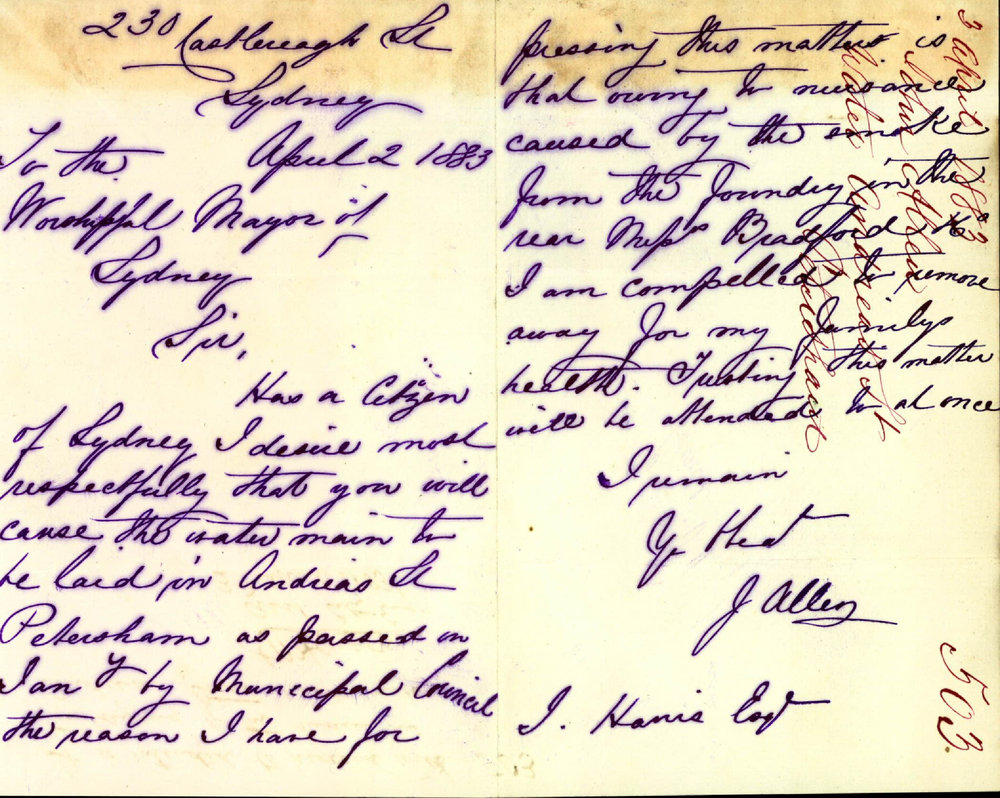 230 Castlereagh St
Sydney
April 2 1883
To the
Worshipful Mayor of
Sydney
Sir,
Has a Citizen
of Sydney I desire most
respectfully that you will
cause the water main to
be laid in Andreas St
Petersham as passed in
Jany by Municipal Council
the reason I have for
pressing this matter is
that owing to nuisance
caused by the smoke
from the foundry in the
rear Messrs Bradford &
I am compelled to remove
away for my familys
health. Trusting this matter
will be attended to at once
I remain
Yr
J Allen
J. Harris Esqr
3 April 1883
John Allen
Water Andreas St
Petersham
503